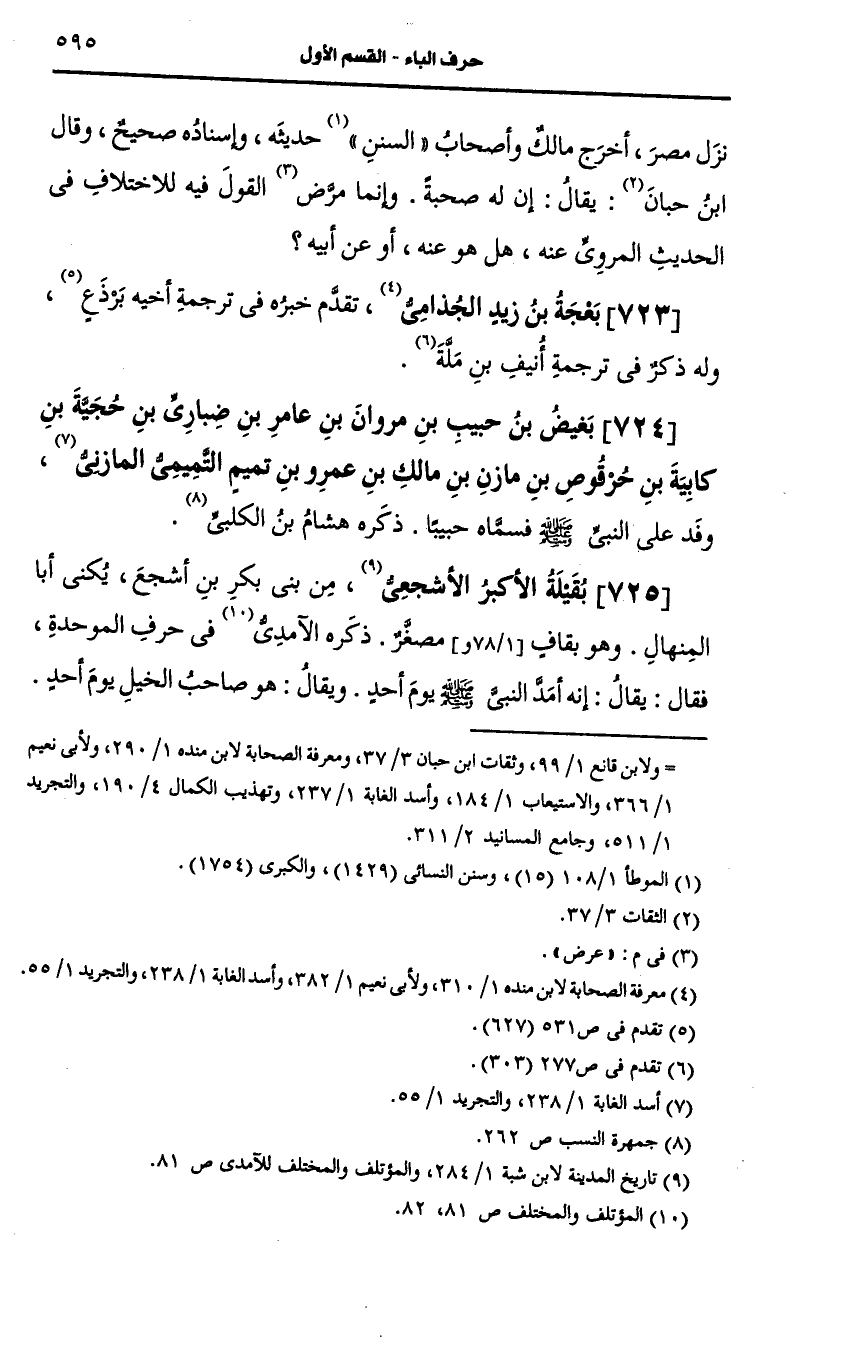 حرف الباء - القسم الأول ٥٩٥
نزَل مصرَ ، أخرَج مالكٌ وأصحابُ « السننِ »(١) حديثَه ، وإسنادُه صحيحٌ ، وقال
ابنُ حبانَ(٢) : يقالُ : إن له صحبةً . وإنما مرَّض(٣) القولَ فيه للاختلافِ فى
الحديثِ المروىِّ عنه ، هل هو عنه ، أو عن أبيه ؟
[٧٢٣] بَعْجَةُ بنُ زيدٍ الجُذامىُّ(٤) ، تقدَّم خبرُه فى ترجمةِ أخيه بَرْذَعٍ(٥) ،
وله ذكرٌ فى ترجمةِ أُنيفِ بنِ مَلَّةَ(٦) .
[٧٢٤] بَغيضُ بنُ حبيبِ بنِ مروانَ بنِ عامرِ بنِ ضِبارىِّ بنِ حُجَيَّةَ بنِ
كابِيَةَ بنِ حُرْقُوصِ بنِ مازنِ بنِ مالكِ بنِ عمرِو بنِ تميمٍ التَّمِيمِىُّ المازنىُّ(٧) ،
وفَد على النبىِّ ﷺ فسمَّاه حبيبًا . ذكَره هشامُ بنُ الكلبىِّ(٨) .
[٧٢٥] بُقَيْلَةُ الأكبرُ الأشجعِىُّ(٩) ، مِن بنى بكرِ بنِ أشجعَ ، يُكنى أبا
المِنهالِ . وهو بقافٍ [٧٨/١و] مصغَّرٌ . ذكَره الآمدِىُّ(١٠) فى حرفِ الموحدةِ ،
فقال : يقالُ : إنه أمَدَّ النبىَّ ﷺ يومَ أحدٍ . ويقالُ : هو صاحبُ الخيلِ يومَ أحدٍ .
= ولابن قانع ١/ ٩٩، وثقات ابن حبان ٣/ ٣٧، ومعرفة الصحابة لابن منده ١/ ٢٩٠، ولأبى نعيم
١/ ٣٦٦، والاستيعاب ١/ ١٨٤، وأسد الغابة ١/ ٢٣٧، وتهذيب الكمال ٤/ ١٩٠، والتجريد
١/ ٥١١، وجامع المسانيد ٢/ ٣١١.
(١) الموطأ ١/ ١٠٨ (١٥) ، وسنن النسائى (١٤٢٩) ، والكبرى (١٧٥٤) .
(٢) الثقات ٣/ ٣٧.
(٣) فى م : « عرض » .
(٤) معرفة الصحابة لابن منده ١/ ٣١٠، ولأبى نعيم ١/ ٣٨٢، وأسد الغابة ١/ ٢٣٨، والتجريد ١/ ٥٥.
(٥) تقدم فى ص٥٣١ (٦٢٧) .
(٦) تقدم فى ص٢٧٧ (٣٠٣) .
(٧) أسد الغابة ١/ ٢٣٨، والتجريد ١/ ٥٥.
(٨) جمهرة النسب ص ٢٦٢.
(٩) تاريخ المدينة لابن شبة ١/ ٢٨٤، والمؤتلف والمختلف للآمدى ص ٨١.
(١٠) المؤتلف والمختلف ص ٨١، ٨٢.